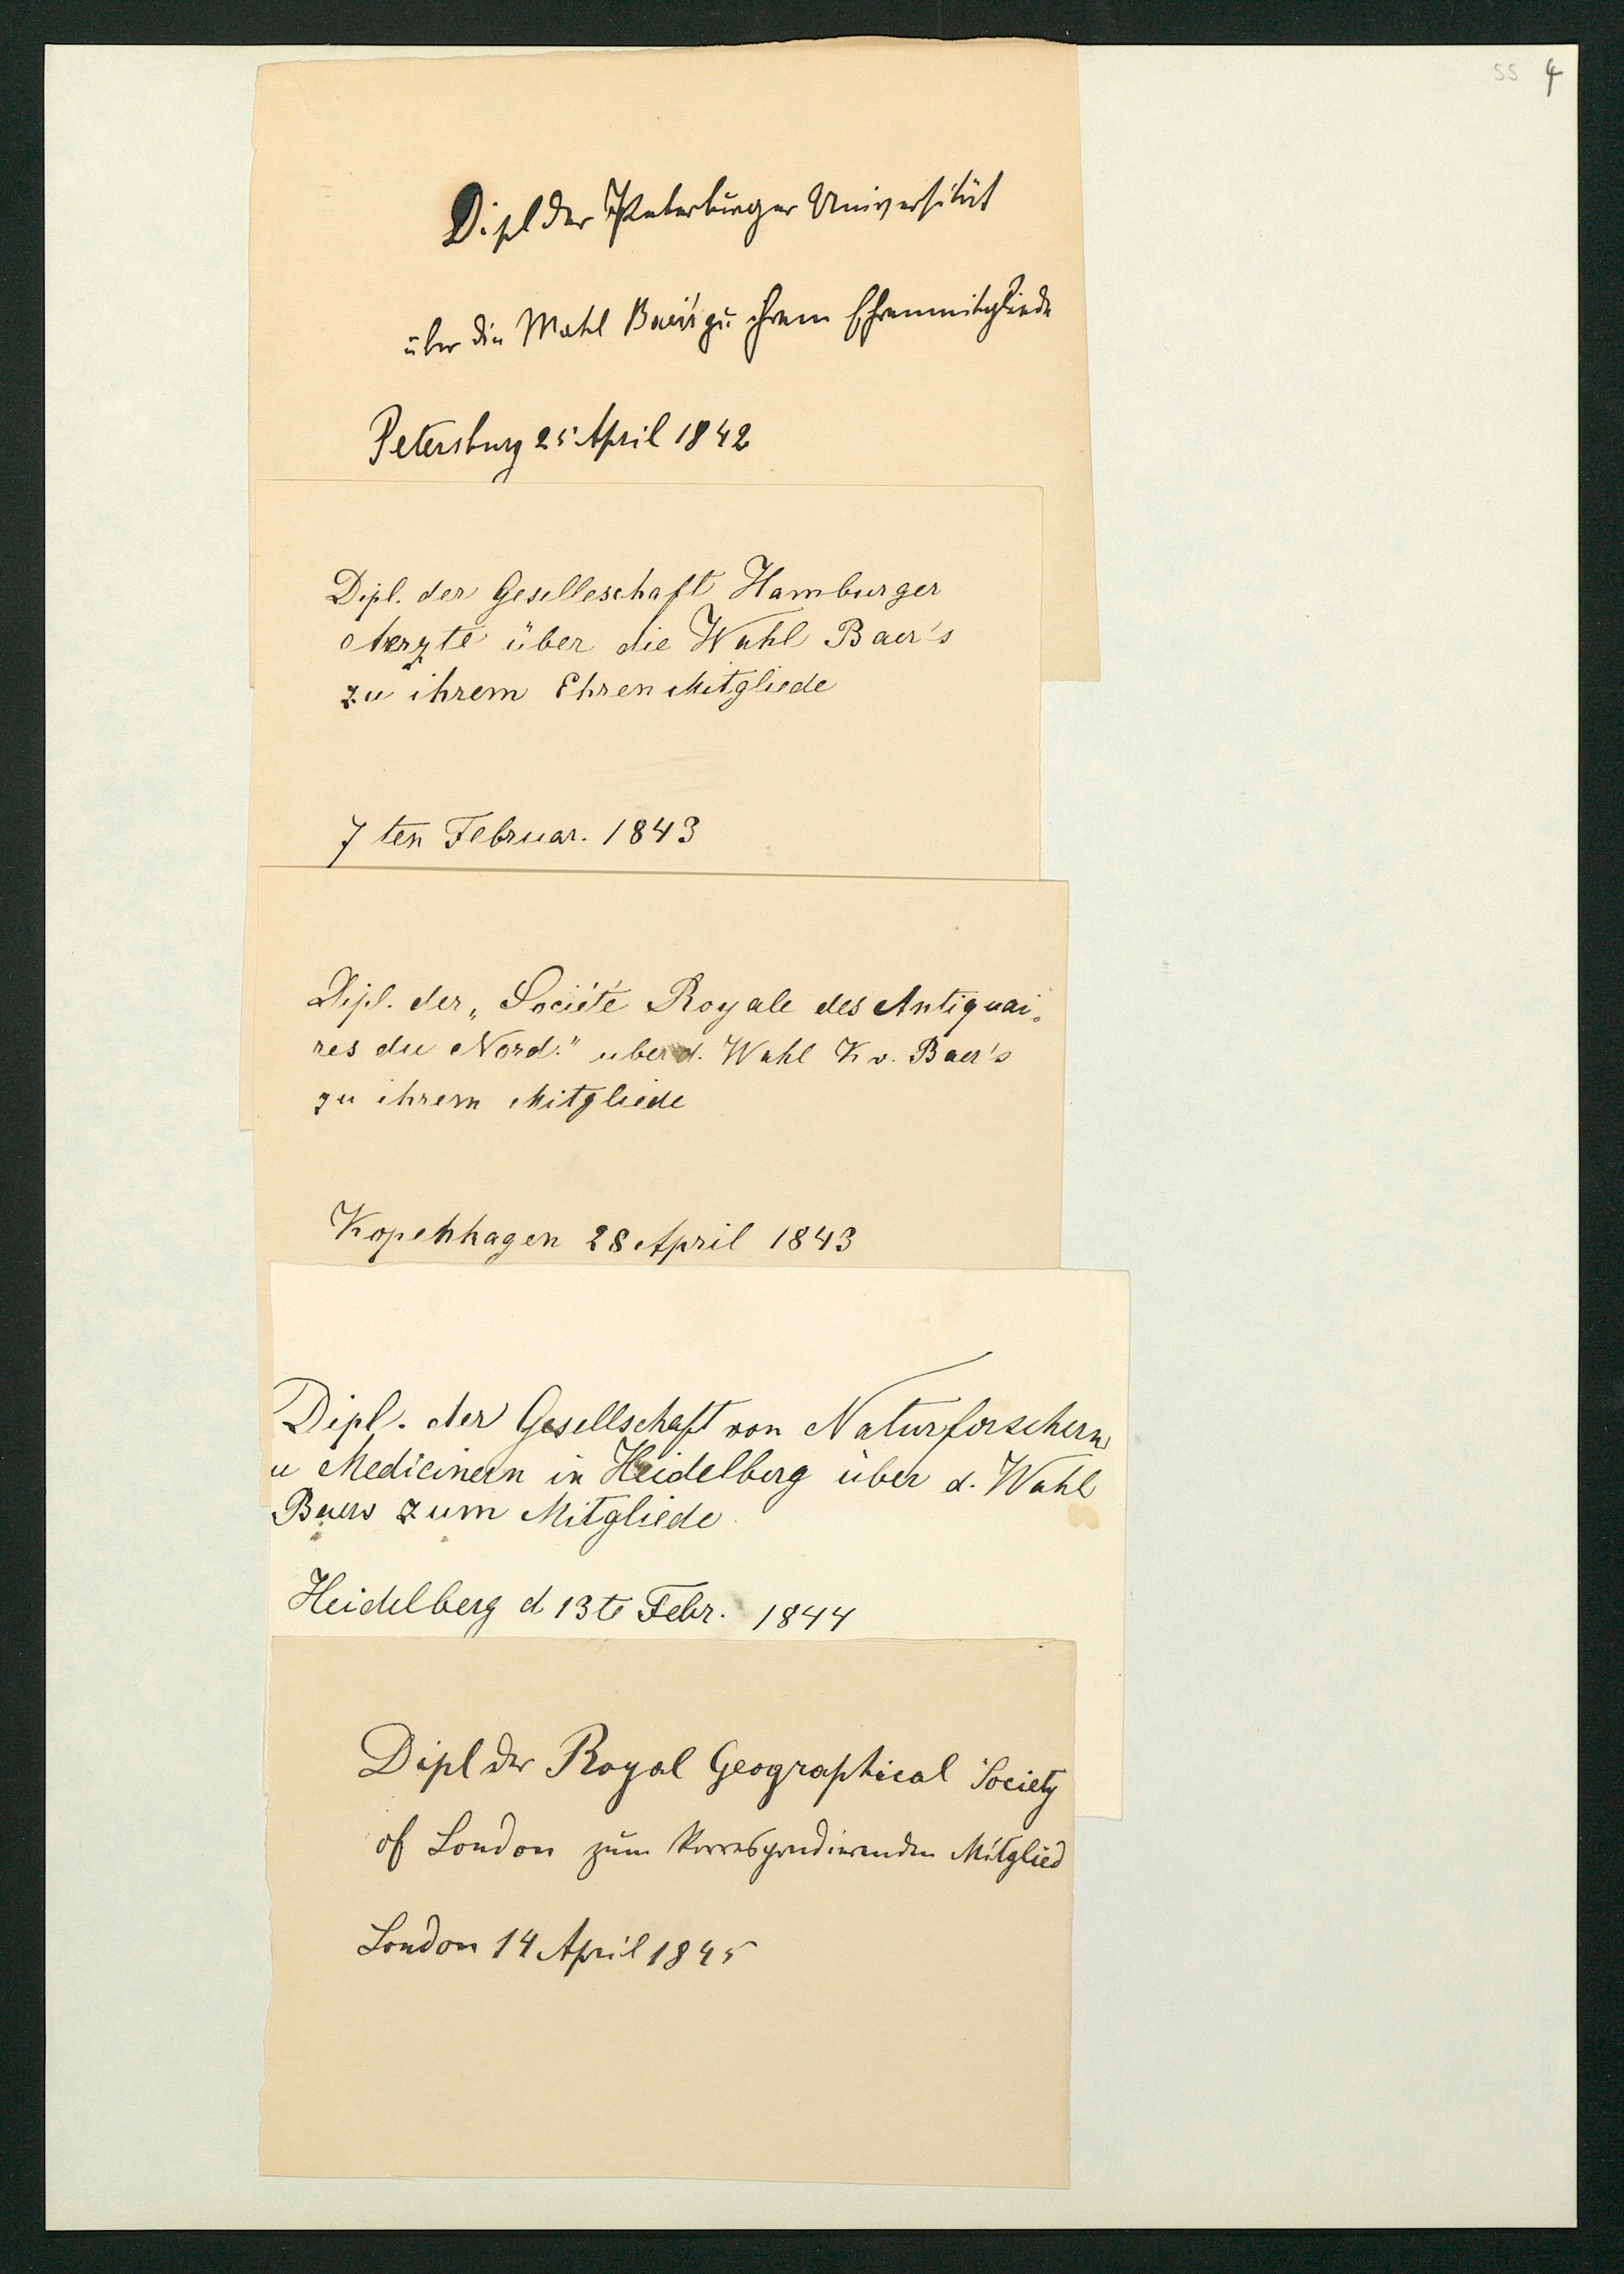 55 4
Dipl der Petersburger Universität
über die Wahl Baer's zu ihrem Ehrenmitgliede
Petersburg 25 April 1842
Dipl. der Geselleschaft Hamburger
Aerzte über die Wahl Baer's
zu ihrem Ehren Mitgliede
7 ten Februar. 1843
Dipl. der „Société Royale des Antiquai-
res du Nord." uber d. Wahl K v. Baer's
zu ihrem Mitgliede
Kopenhagen 28 April 1843
Dipl. der Gesellschaft von Naturforschern
u Medicinern in Heidelberg über d. Wahl
Baers zum Mitgliede
Heidelberg d 13te Febr. 1844
Dipl der Royal Geographical Society
of London zum korrespondierenden Mitglied
London 14 April 1845